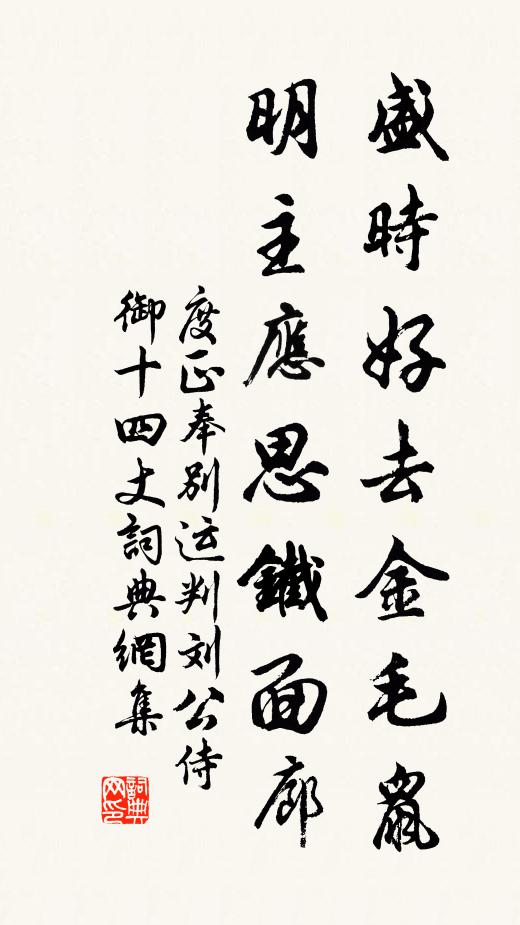 盛時好去金毛鼠
明主應思鐵面廊
度正奉別运判刘公侍
御十四丈詞典網集
詞典网印